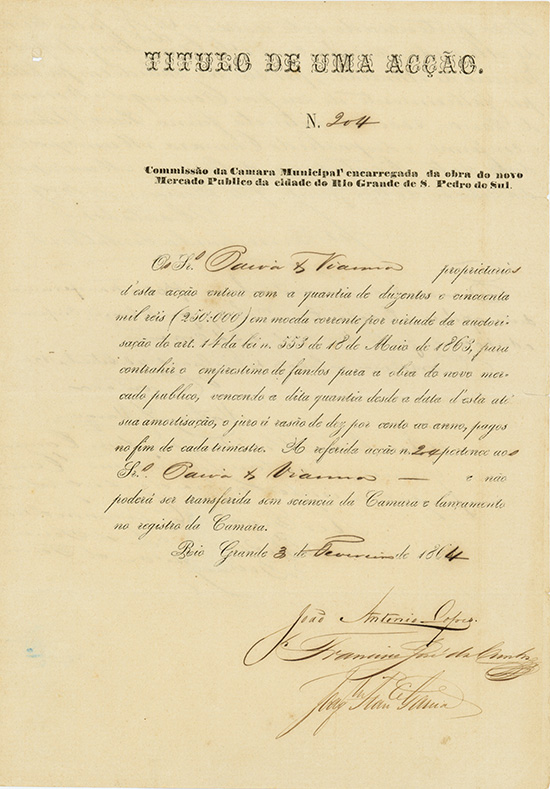 TITULO DE UMA ACÇÃO.
N. 204
Commissão da Camara Municipal encarregada da obra do novo
Mercado Publico da cidade do Rio Grande de S. Pedro do Sul.
Os Sr.s Paiva & Vianna proprietarios
d'esta acção entrou com a quantia de duzentos e cincoenta
mil réis (250:000) em moeda corrente por virtude da auctori-
sação do art. 14 da lei n. 553 de 18 de Maio de 1863, para
contrahir o emprestimo de fundos para a obra do novo mer-
cado publico, vencendo a dita quantia desde a data d'esta até
sua amortisação, o juro á rasão de dez por cento ao anno, pagos
no fim de cada trimestre. A referida acção n. 204 pertence aos
Sr.s Paiva & Vianna — e não
poderá ser transferida sem sciencia da Camara e lançamento
no registro da Camara.
Rio Grande 3 de Fevereiro de 1864
João Antonio Lopes.
Francisco José da Cunha